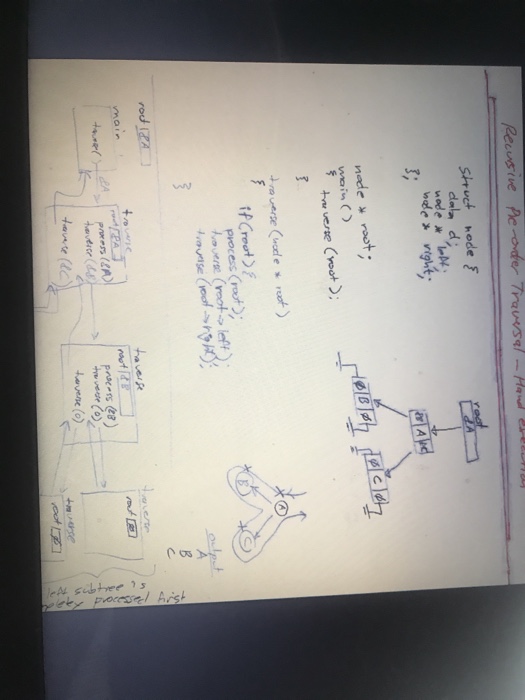 Recursive Pre-order Traversal - Hand execution
struct node {
data d;
node * left;
node * right;
};
root
&A
&B A &C
Ø B Ø
Ø C Ø
node * root;
main ( )
{ traverse (root);
}
traverse (node * root)
{
if (root) {
process (root);
traverse (root → left);
traverse (root → right);
}
}
A
B
C
output
A
B
C
root &A
main
traverse
root &A
process (&A)
traverse (&B)
traverse (&C)
traverse
root &B
process (&B)
traverse (0)
traverse (0)
traverse
root
traverse
root
left subtree is
processed first